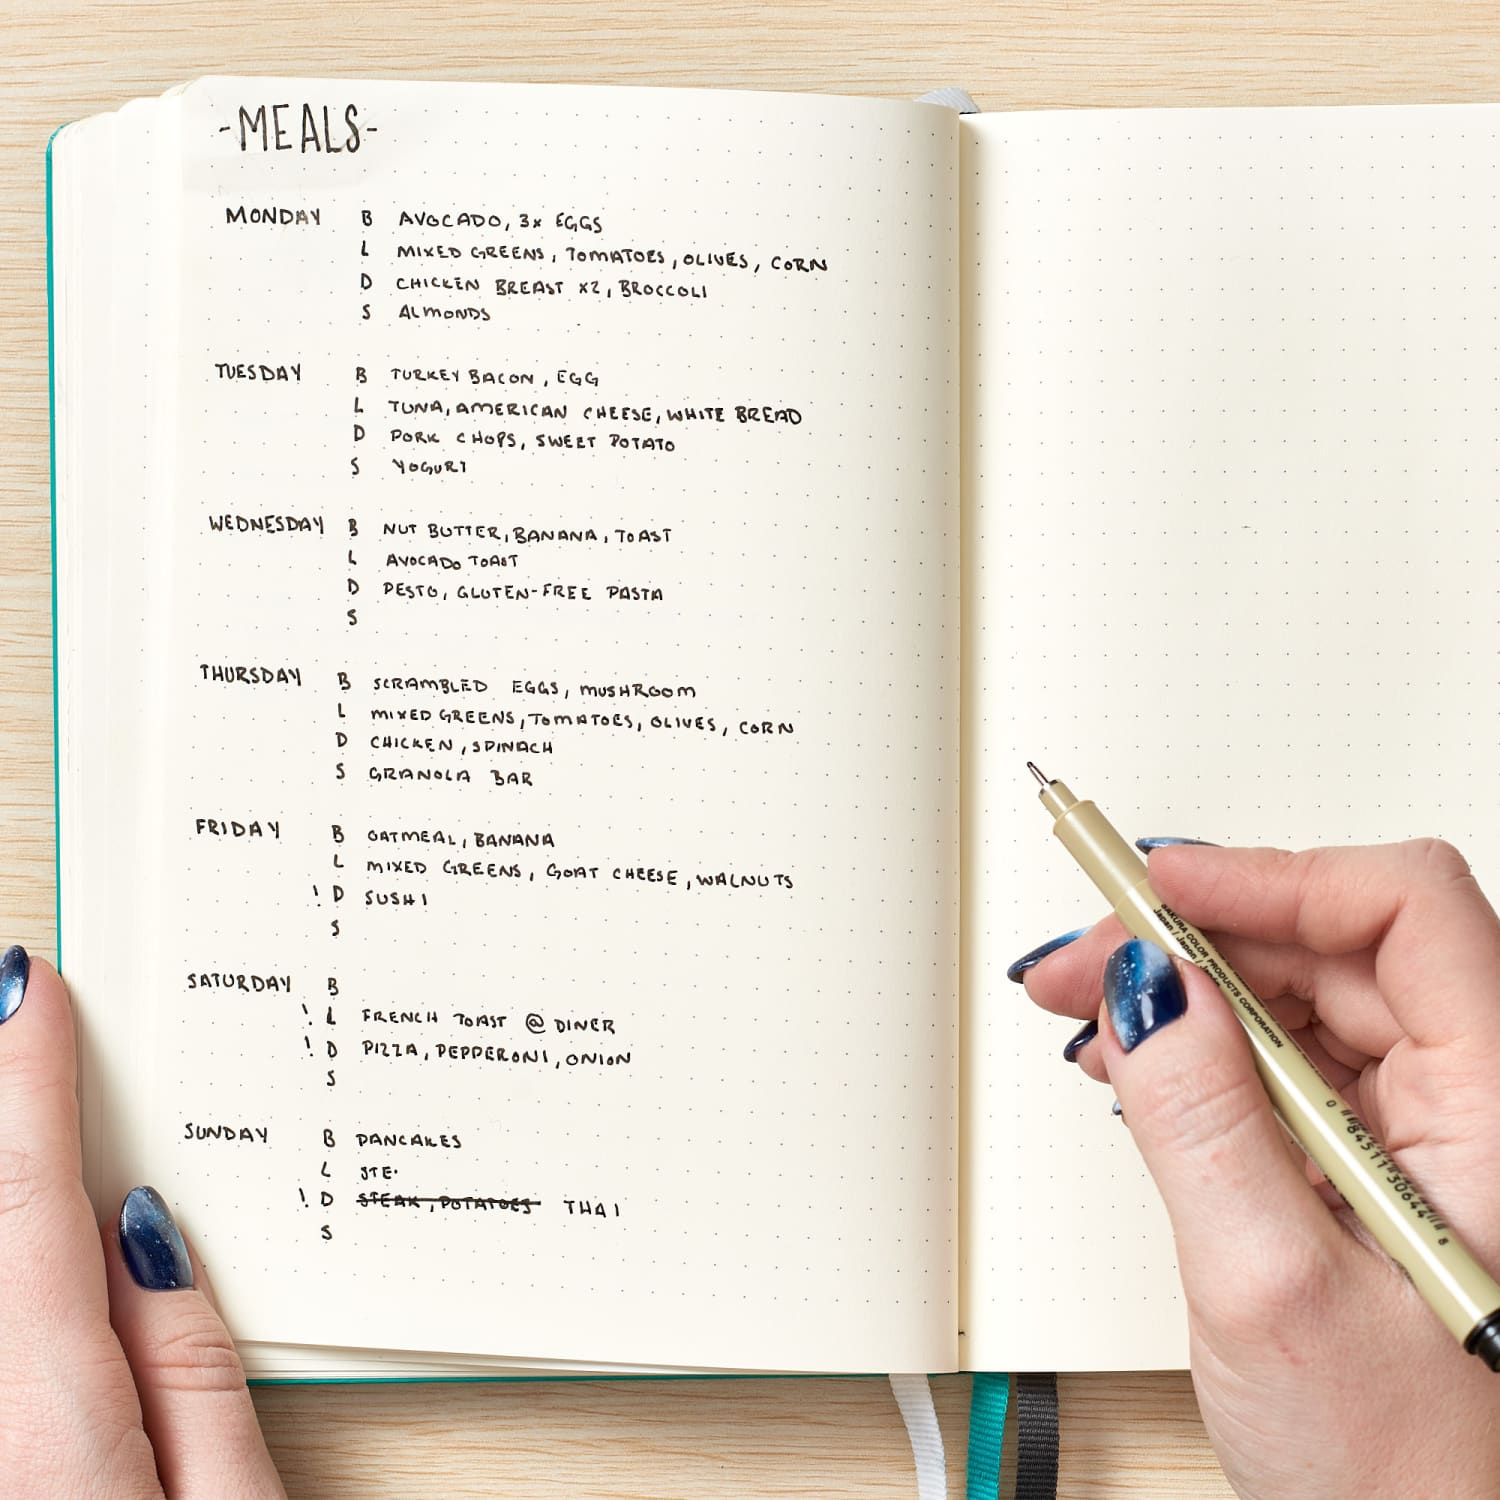 -MEALS-
MONDAY B AVOCADO, 3x EGGS
L MIXED GREENS, TOMATOES, OLIVES, CORN
D CHICKEN BREAST x2, BROCCOLI
S ALMONDS
TUESDAY B TURKEY BACON, EGG
L TUNA, AMERICAN CHEESE, WHITE BREAD
D PORK CHOPS, SWEET POTATO
S YOGURT
WEDNESDAY B NUT BUTTER, BANANA, TOAST
L AVOCADO TOAST
D PESTO, GLUTEN-FREE PASTA
S
THURSDAY B SCRAMBLED EGGS, MUSHROOM
L MIXED GREENS, TOMATOES, OLIVES, CORN
D CHICKEN, SPINACH
S GRANOLA BAR
FRIDAY B OATMEAL, BANANA
L MIXED GREENS, GOAT CHEESE, WALNUTS
! D SUSHI
S
SATURDAY B
! L FRENCH TOAST @ DINER
! D PIZZA, PEPPERONI, ONION
S
SUNDAY B PANCAKES
L STE
! D STEAK, POTATOES THAI
S
SAKURA COLOR PRODUCTS CORPORATION
Japan / Japon / Japón
0 84511 30644 8